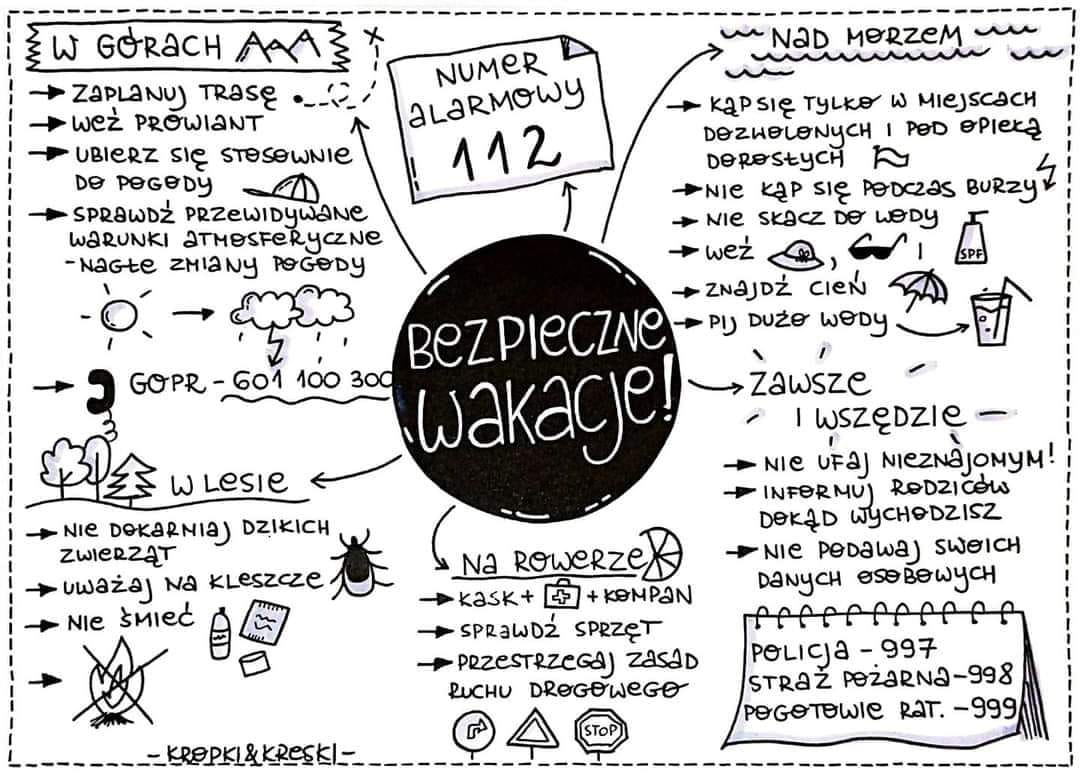 W GÓRACH
ZAPLANUJ TRASĘ
WEŹ PROWIANT
UBIERZ SIĘ STOSOWNIE
DO POGODY
SPRAWDŹ PRZEWIDYWANE
WARUNKI ATMOSFERYCZNE
- NAGŁE ZMIANY POGODY
GOPR - 601 100 300
NUMER
ALARMOWY
112
NAD MORZEM
KĄP SIĘ TYLKO W MIEJSCACH
DOZWOLONYCH I POD OPIEKĄ
DOROSŁYCH
NIE KĄP SIĘ PODCZAS BURZY
NIE SKACZ DO WODY
WEŹ , I
SPF
ZNAJDŹ CIEŃ
PIJ DUŻO WODY
BEZPIECZNE
WAKACJE!
ZAWSZE
I WSZĘDZIE
NIE UFAJ NIEZNAJOMYM!
INFORMUJ RODZICÓW
DOKĄD WYCHODZISZ
NIE PODAWAJ SWOICH
DANYCH OSOBOWYCH
W LESIE
NIE DOKARMIAJ DZIKICH
ZWIERZĄT
UWAŻAJ NA KLESZCZE
NIE ŚMIEĆ
NA ROWERZE
KASK + + KOMPAN
SPRAWDŹ SPRZĘT
PRZESTRZEGAJ ZASAD
RUCHU DROGOWEGO
STOP
POLICJA - 997
STRAŻ POŻARNA - 998
POGOTOWIE RAT. - 999
- KROPKI & KRESKI -